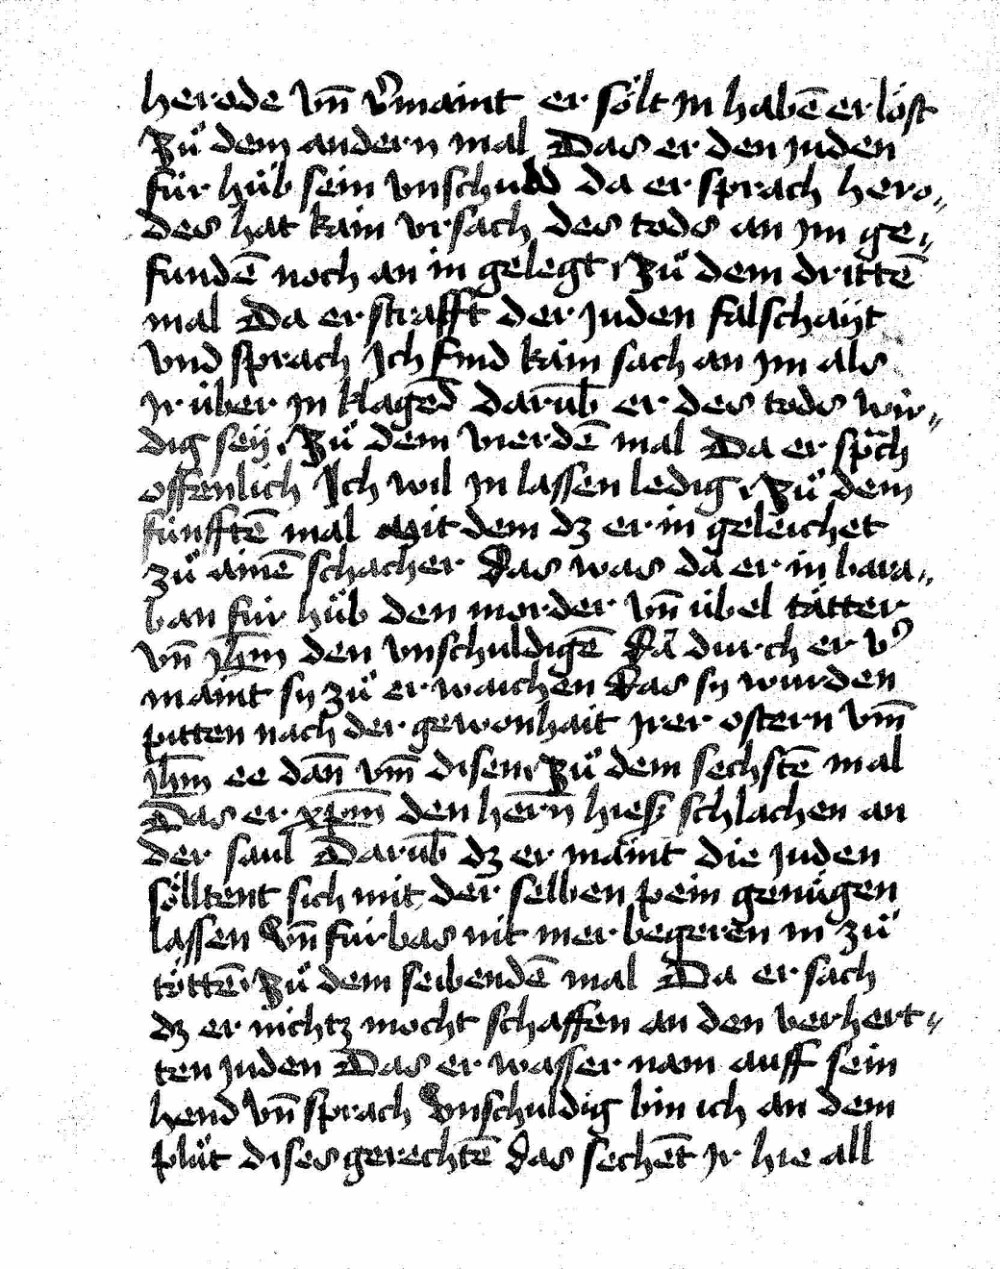 herode vn̄ v̉maint er sölt in habē erlöst
Zů dem andern mal Das er den juden
für hůb sein vnschuld da er sprach hero⸗
des hat kain vrsach des tods an im ge⸗
fundē noch an in gelegt Zů dem drittē
mal Da er strafft der juden falschaÿt
vnd sprach Ich find kain sach an im als
ir über in klagēd darūb er des tods wir⸗
dig seÿ Zů dem vierdē mal Da er sp̄ch
offenlich Ich wil in lassen ledig Zů dem
fünfftē mal Mit dem dz er in geleichet
zů ainē schacher Das was da er in bara⸗
ban für hůb den morder vn̄ übel tätter
vn̄ ih̄m den vnschuldigē Da durch er v̉
maint sy zů erwaichen Das sy wurden
pitten nach der gewonhait irer ostern vm̄
ih̄m ee dan̄ vm̄ disen Zů dem sechstē mal
Das er xp̄m den hern̄ hiesz schlachen an
der saul Darūb dz er maint die juden
sölltent sich mit der selben pein genügen
lassen vn̄ fürbas nit mer begeren in zů
töttē Zů dem seibendē mal Da er sach
dz er nichtz mocht schaffen an den verhert⸗
ten juden Das er wasser nam auff sein
hend vn̄ sprach Vnschuldig bin ich an dem
plůt dises gerechtē das sechēt ir hie all